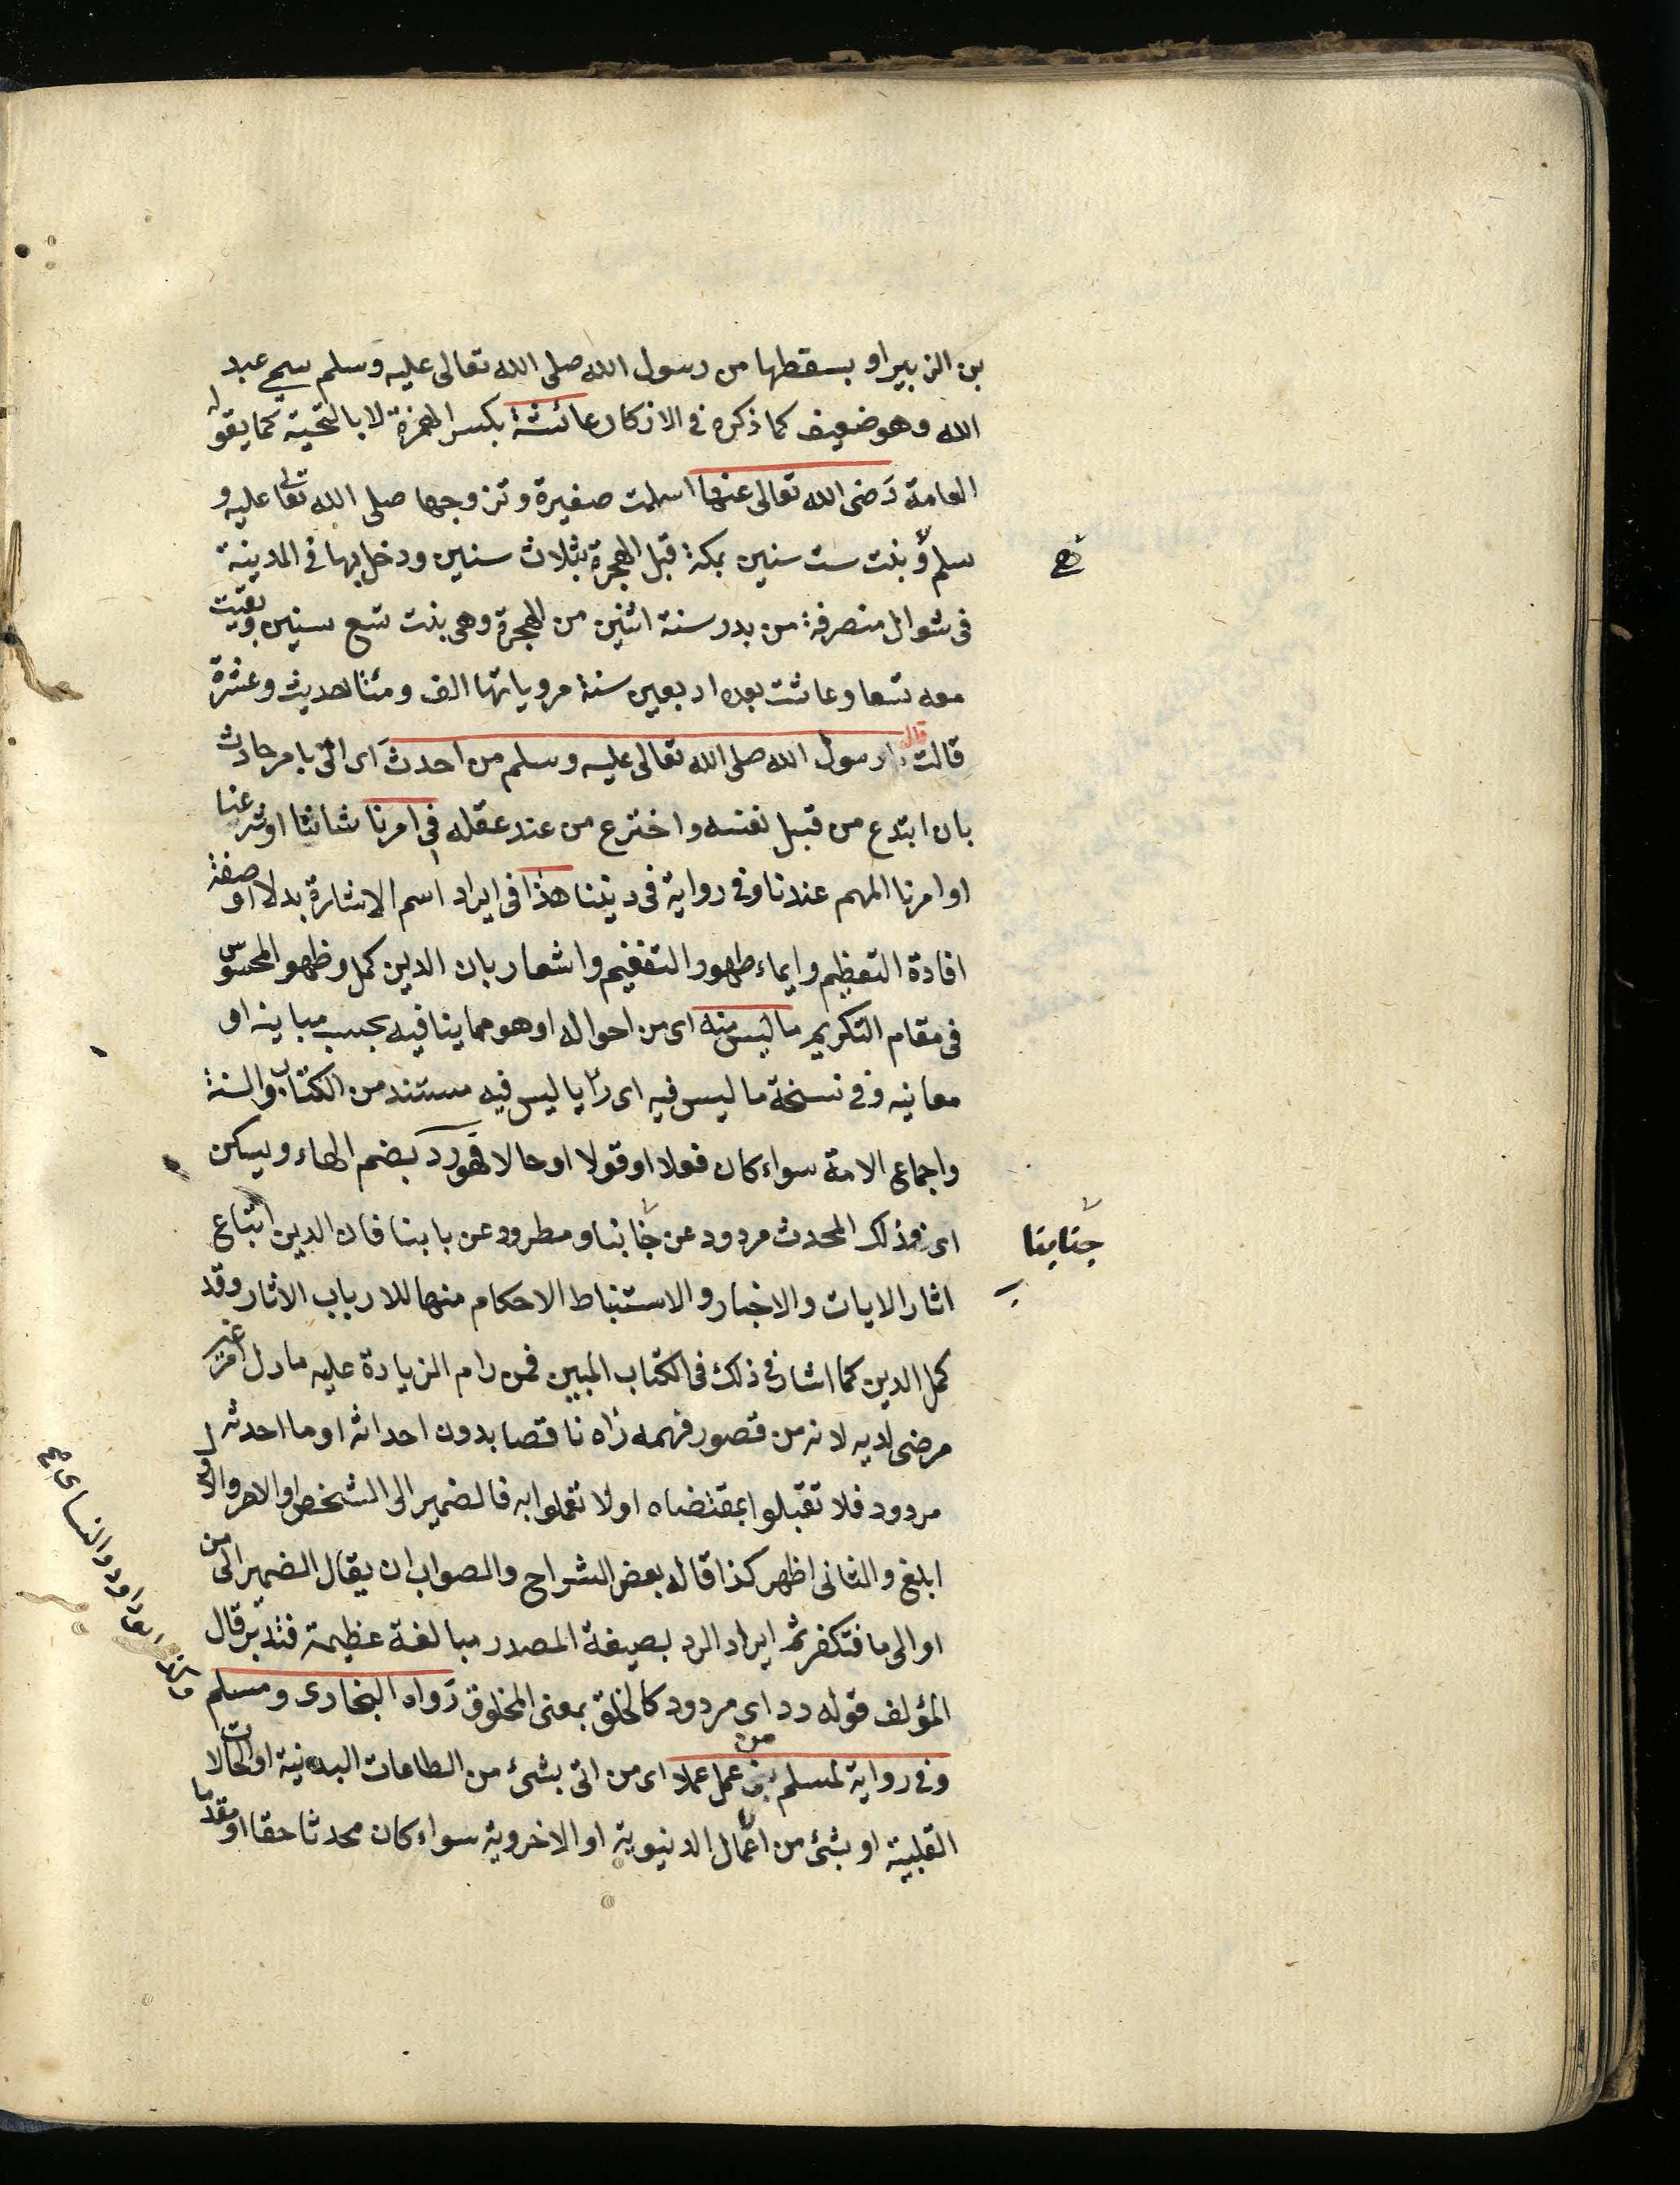 بن الزبير او بسقطها من رسول الله صلى الله تعالى عليه وسلم سمي عبد
الله وهو ضعيف كما ذكره في الاذكار عائشة بكسر الهمزة لا بالتحتية كما يقوله
العامة رضى الله تعالى عنها اسلمت صغيرة وتزوجها صلى الله تعالى عليه و
سلم و بنت ست سنين بمكة قبل الهجرة بثلاث سنين ودخل بها في المدينة
هي
فى شوال منصرفة من بدر سنة اثنين من الهجرة وهى بنت تسع سنين وبقيت
معه تسعا وعاشت بعده اربعين سنة مروياتها الف ومئتا حديث وعشرة
قالت قال رسول الله صلى الله تعالى عليه وسلم من احدث اى اتى بامر حادث
بان ابتدع من قبل نفسه واخترع من عند عقله في امرنا شاننا او شرعنا
او امرنا المهم عندنا وفي رواية فى ديننا هذا فى ايراد اسم الاشارة بدلا او صفة
افادة التعظيم وايماء ظهور التفخيم واشعار بان الدين كمل وظهر المحسوس
فى مقام التكريم ما ليس منه اى من احواله او هو مما ينافيه بحسب مباينه او
معانيه وفي نسخة ما ليس فيه اى رأيا ليس فيه مستند من الكتاب والسنة
واجماع الامة سواء كان فعلا او قولا او حالا فهو رد بضم الهاء ويسكن
اى فذلك المحدث مردود عن جنابنا ومطرود عن بابنا فان الدين اتباع
جنابنا
اثار الايات والاخبار والاستنباط الاحكام منها للارباب الاثار وقد
كمل الدين كما اشار فى ذلك فى الكتاب المبين فمن رام الزيادة عليه ما دل امر غير
مرضى لديه لانه من قصور فهمه راه ناقصا بدون احداثه او ما احدثه
مردود فلا تقبلوا بمقتضاه او لا تعملوا به فالضمير الى الشخص او الامر والاول
ابلغ والثانى اظهر كذا قاله بعض الشراح والصواب ان يقال الضمير الى من
او الى ما فتكفر ثم ايراد الرد بصيغة المصدر مبالغة عظيمة فتدبر قال
المؤلف قوله رد اى مردود كالخلق بمعنى المخلوق رواه البخارى ومسلم
وفي رواية لمسلم من عمل عملا اى من اتى بشئ من الطاعات البدنية او الحالات
القلبية او بشئ من اعمال الدنيوية او الاخروية سواء كان محدثا حقا او مقدما
داود والنسائى